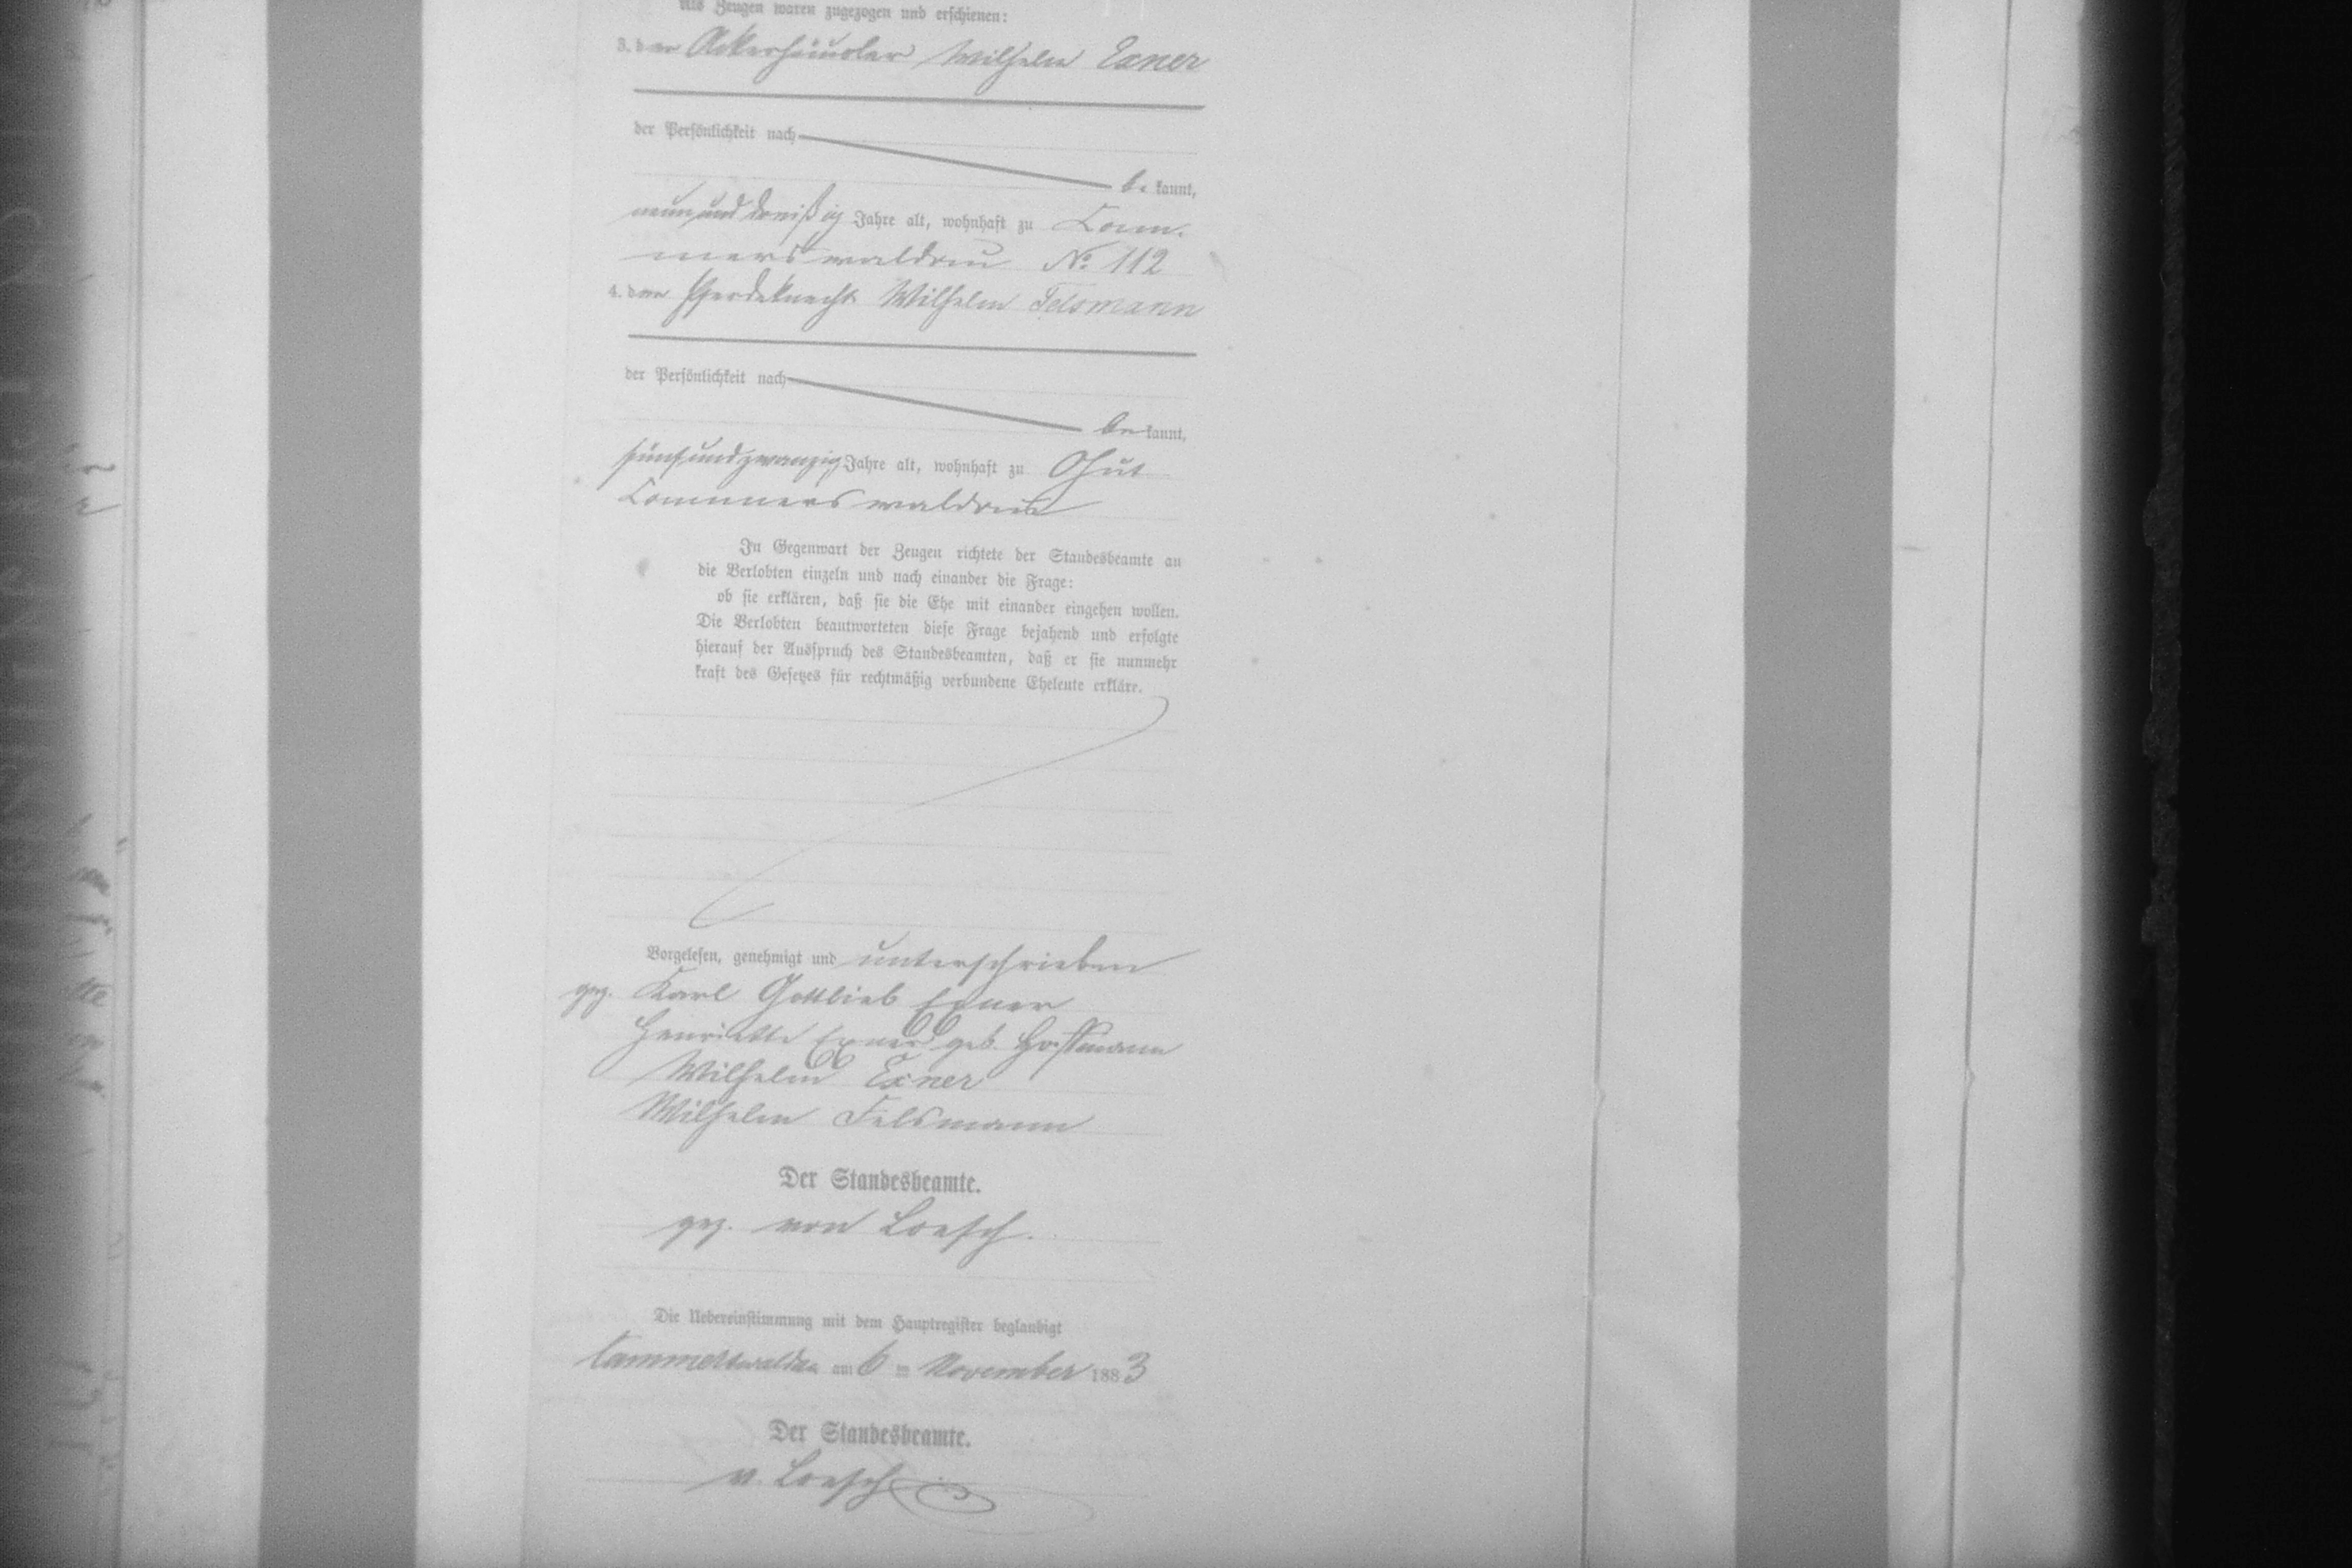 Als Zeugen waren zugezogen und erschienen:
3. der Ackerhäusler Wilhelm Exner
der Persönlichkeit nach
be kannt,
neunund dreißig Jahre alt, wohnhaft zu Com-
merswaldau No 112
4. der Pferdeknecht Wilhelm Felsmann
der Persönlichkeit nach
be kannt,
fünfundzwanzig Jahre alt, wohnhaft zu
Commerswaldau
In Gegenwart der Zeugen richtete der Standesbeamte an
die Verlobten einzeln und nach einander die Frage:
ob sie erklären, daß sie die Ehe mit einander eingehen wollen.
Die Verlobten beantworteten diese Frage bejahend und erfolgte
hierauf der Ausspruch des Standesbeamten, daß er sie nunmehr
kraft des Gesetzes für rechtmäßig verbundene Eheleute erkläre.
Vorgelesen, genehmigt und unterschrieben
gez. Karl Gottlieb Exner
Henriette Exner geb. Hoffmann
Wilhelm Exner
Wilhelm Felsmann
Der Standesbeamte.
gez. von Loesch.
Die Uebereinstimmung mit dem Hauptregister beglaubigt
Cammerswaldau am 6 ten November 1883
Der Standesbeamte.
v. Loesch